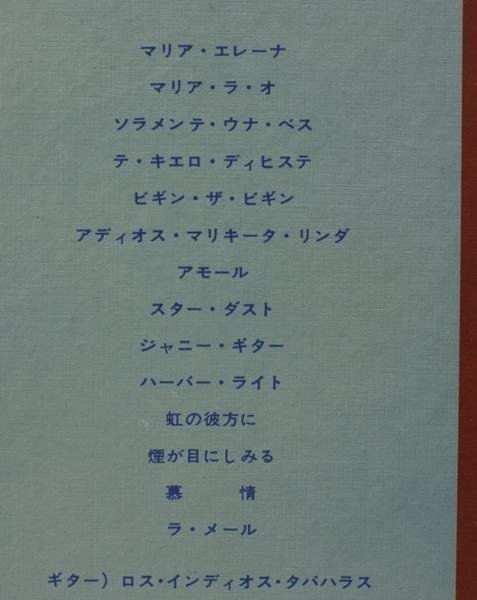 マリア・エレーナ
マリア・ラ・オ
ソラメンテ・ウナ・ベス
テ・キエロ・ディヒステ
ビギン・ザ・ビギン
アディオス・マリキータ・リンダ
アモール
スター・ダスト
ジャニー・ギター
ハーバー・ライト
虹の彼方に
煙が目にしみる
慕　　　情
ラ・メール
ギター）ロス・インディオス・タバハラス